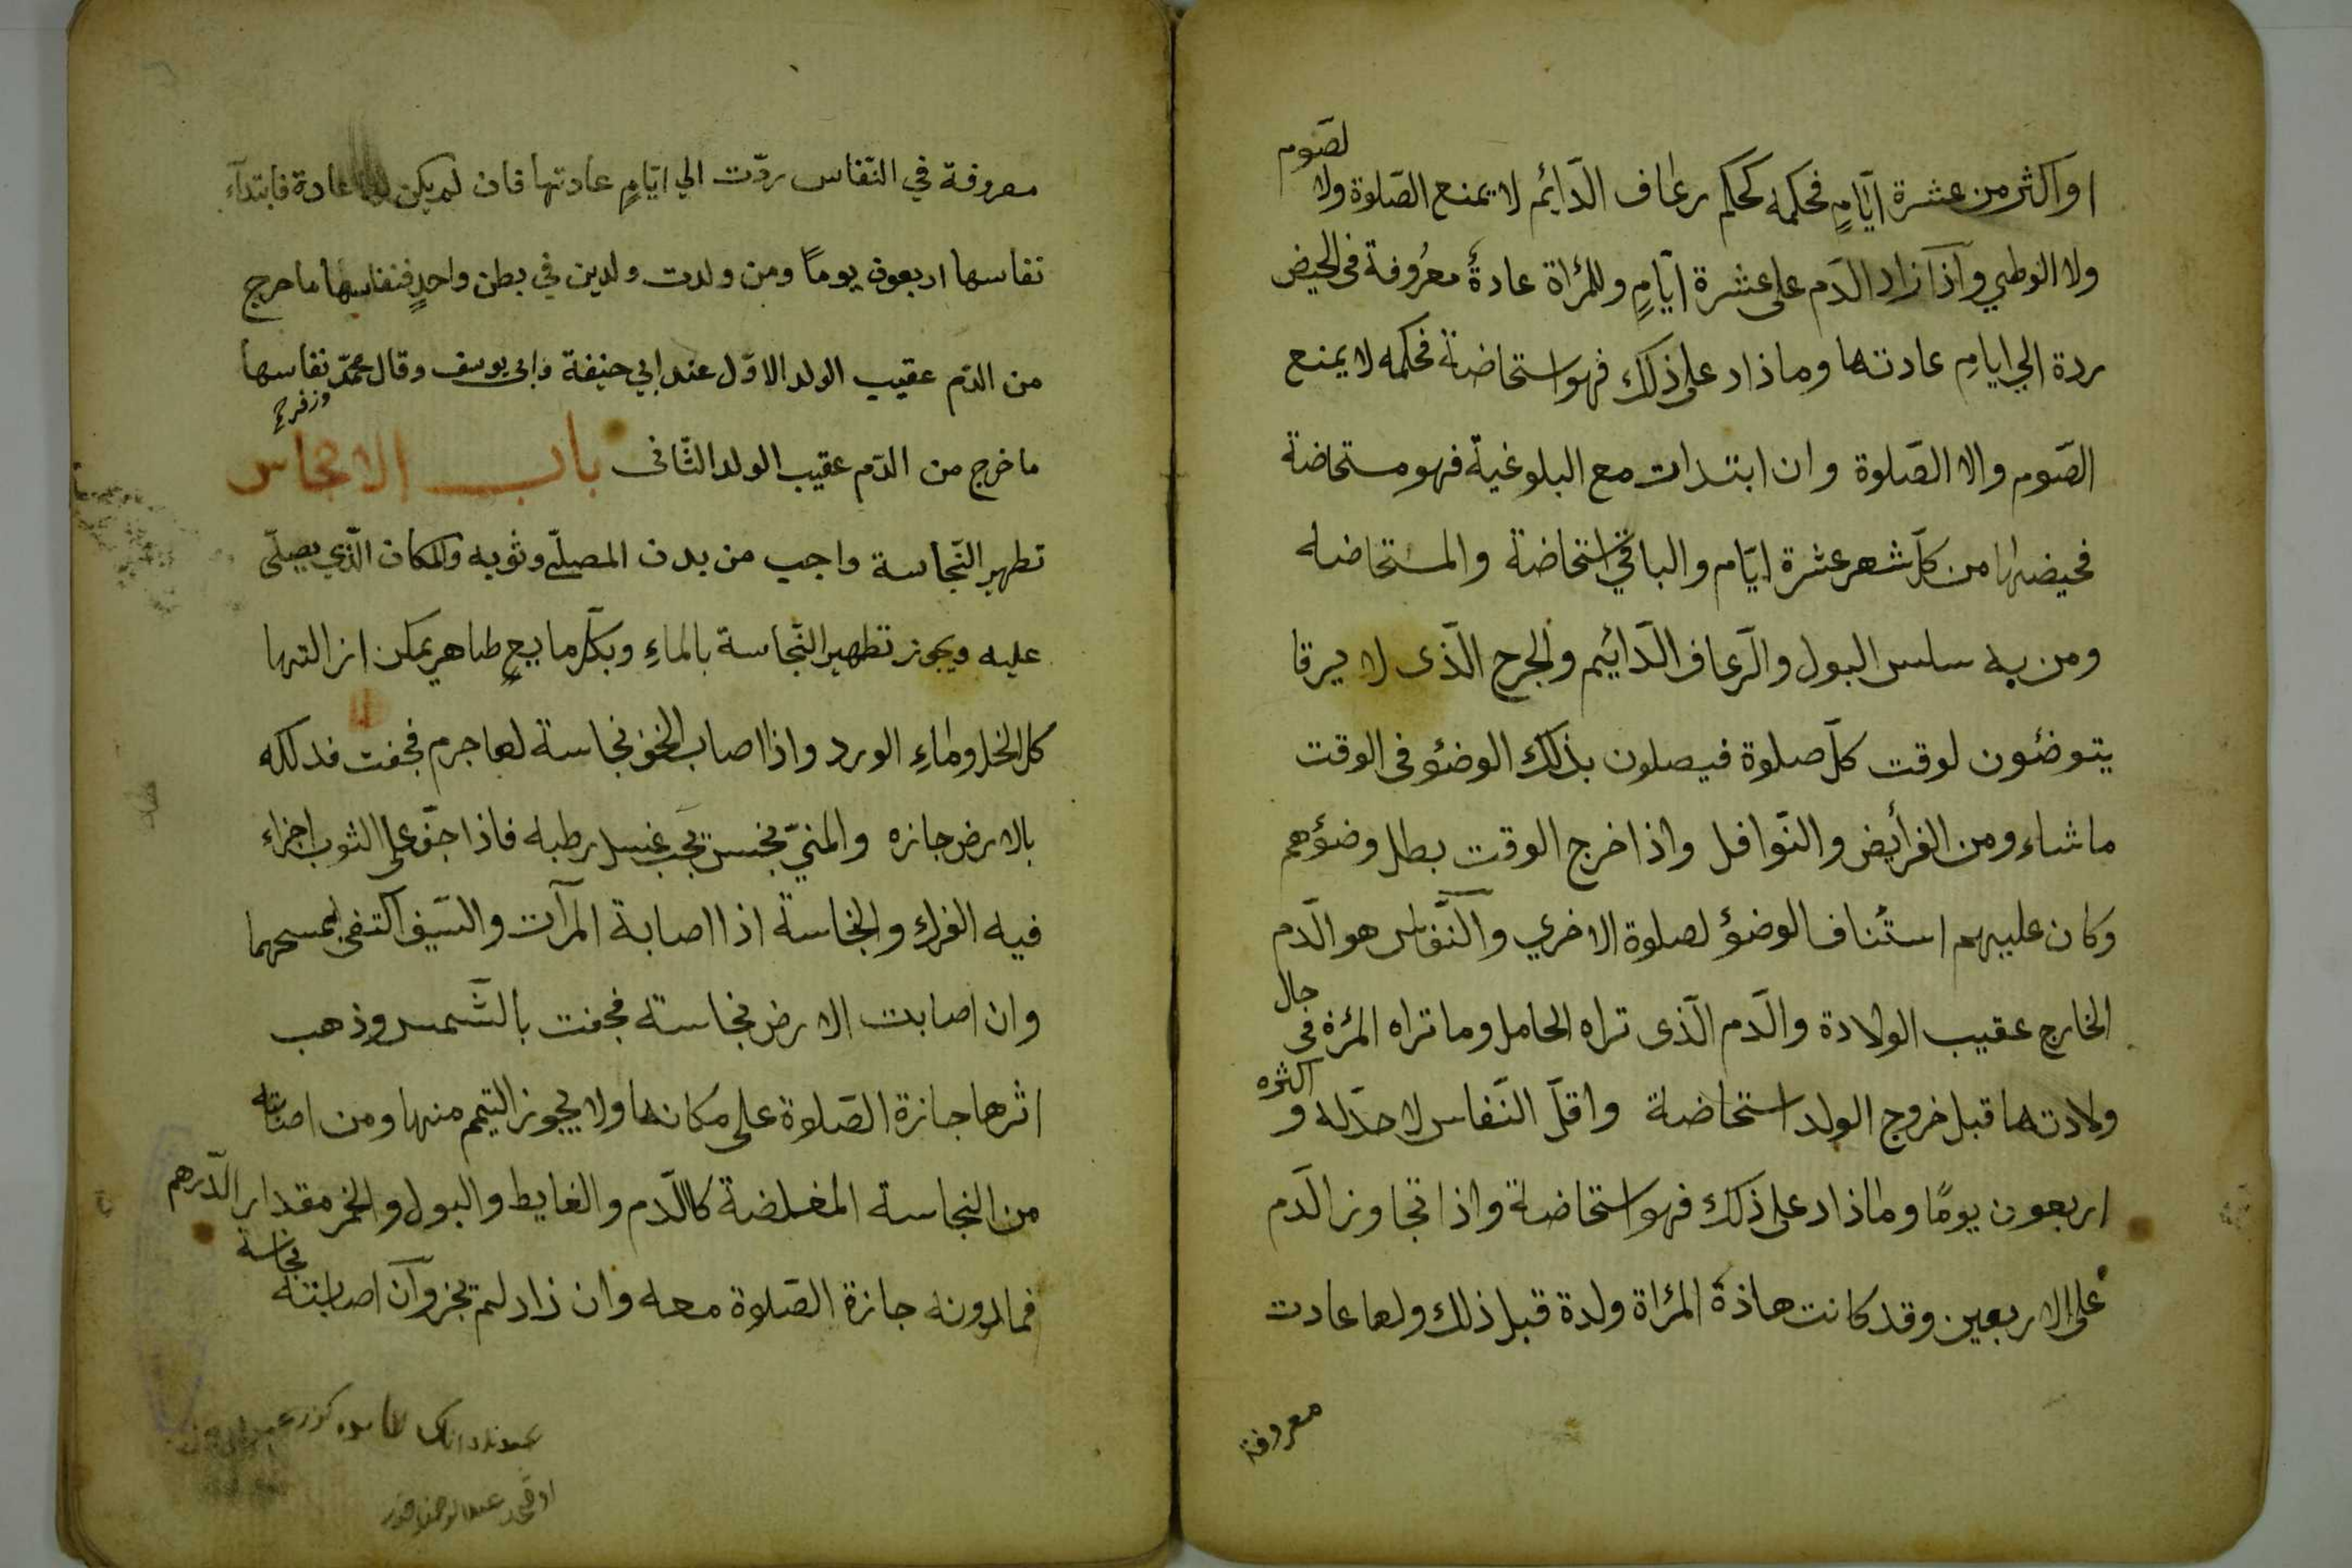 او اكثر من عشرة ايّامٍ فحكمه كحكم رعاف الدّائم لا يمنع الصّلوة ولا لصّوم
ولا الوطي وآذا زاد الدّم على عشرة ايّامٍ وللمرٔاة عادةٌ معرُوفة فى الحيض
ردة الي ايامِ عادتها وما ذاد على ذلك فهو استحاضة فحكمه لا يمنع
الصّوم والا الصّلوة وان ابتدات مع البلوغية فهو مستحاضة
فحيضها من كلّ شهر عشرة ايّام والباقي استحاضة والمستحاضه
ومن به سلس البول والرّعاف الدّائيم والجرح الّذى لا يرقا
يتوضئون لوقت كلّ صلوة فيصلون بذلك الوضؤ فى الوقت
ما شاء ومن الفرأيض والنّوافل واذا خرج الوقت بطل وضؤهم
وكان عليهم استٔناف الوضؤ لصلوة الاخري والنّفاس هو الدّم
الخارج عقيب الولادة والدّم الّذى تراه الحامل وما تراه المرٔة فى حال
ولادتها قبل خروج الولد استحاضة واقلّ النّفاس لا حدّ له و اكثره
اربعون يومًا وما ذاد على ذلك فهو استحاضة واذا تجاوز الدّم
على الاربعين وقد كانت هاذة المرٔاة ولدة قبل ذلك ولها عادت
معروفة
معروفة في النّفاس ردّت الي ايّامٍ عادتها فان لم يكن لها عادة فابتدآء
نفاسها اربعون يوماً ومن ولدت ولدين في بطن واحدٍ فنفاسها ما خرج
من الدّم عقيب الولد الاوّل عند ابي حنيفة وابى يوسف وقال محمّد وزفر نفاسها
ما خرج من الدّم عقيب الولد الثّانى باب الانجاس
تطهير النّجاسة واجب من بدن المصلّي وثوبه والمكان الّذي يصلّى
عليه ويجوز تطهير النّجاسة بالماءِ وبكلّ مايعٍ طاهرٍ يمكن ازالتها
كل الخل وماءِ الورد واذا اصاب الخف نجاسة لها جرم فجفت فدلكه
بالارض جازه والمنيّ نجس يجب غسل رطبه فاذا جفّ على الثوب اجزاء
فيه الفرك والنجاسة اذا اصابة المرآت والسّيف اكتفى بمسحهما
وان اصابت الارض نجاسة فجفت بالشّمس وذهب
اثرها جازة الصّلوة على مكانها ولا يجوز التيمم منها ومن اصابته
من النجاسة المغلضة كالدّم والغايط والبول والخمر مقدار الدّرهم
فمادونه جازة الصّلوة معه وان زاد لم تجز وآن اصابته نجاسة